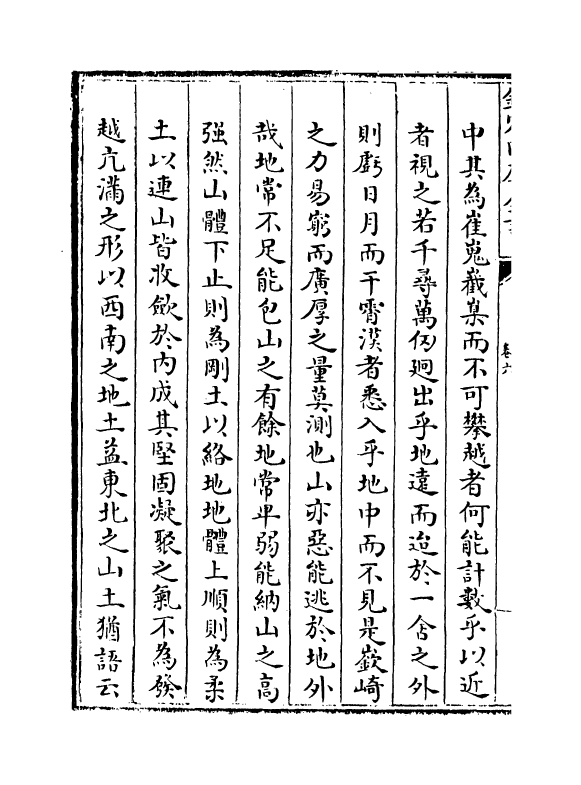 中其為崔嵬嶻嶪而不可攀越者何能計數乎以近
者視之若千尋萬仭迥出乎地遠而迨於一舍之外
則虧日月而干霄漢者悉入乎地中而不見是嶔崎
之力易窮而廣厚之量莫測也山亦惡能逃於地外
哉地常不足能包山之有餘地常卑弱能納山之高
强然山體下止則為剛土以絡地地體上順則為柔
土以連山皆收斂於内成其堅固凝聚之氣不為發
越亢滿之形以西南之地土益東北之山土猶語云
卷六